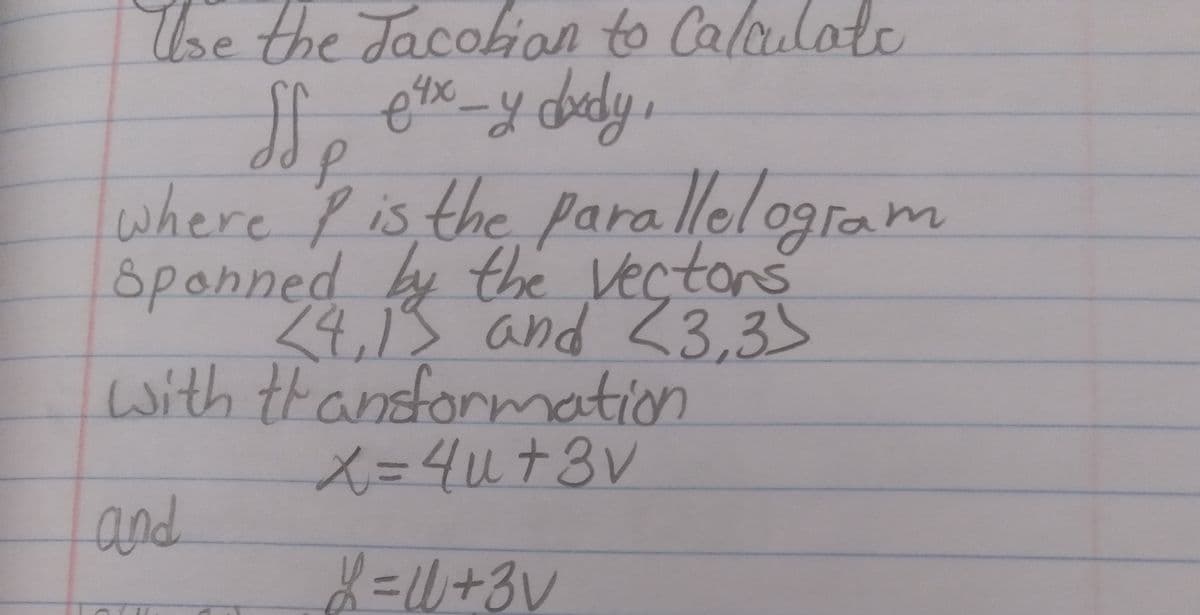 Use the Jacobian to Calculate
∬_P e^4x - y dxdy.
where P is the parallelogram
spanned by the vectors
<4,1> and <3,3>
with transformation
x=4u+3v
and
y=u+3v